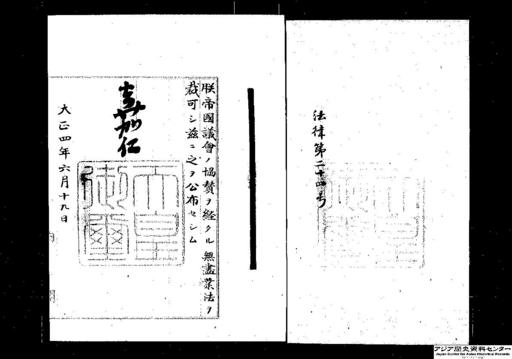 法律第二十四号
朕帝國議會ノ協賛ヲ経タル無盡業法ヲ
裁可シ茲ニ之ヲ公布セシム
嘉仁
天皇
御璽
大正四年六月十九日
アジア歴史資料センター
Japan Center for Asian Historical Records